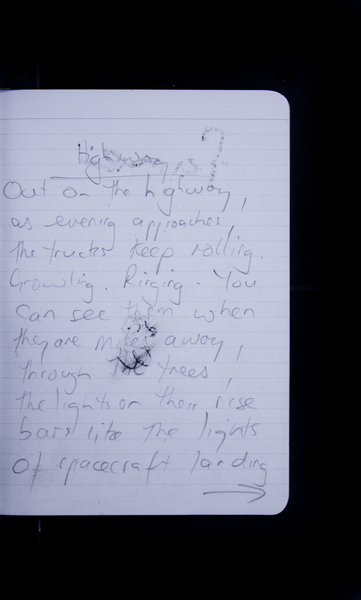 Highway ?
Out on the highway,
as evening approaches,
the trucks keep rolling.
Growling. Ringing. You
can see them when
they are miles away,
through the trees,
the lights on their rise
bars like the lights
of spacecraft landing